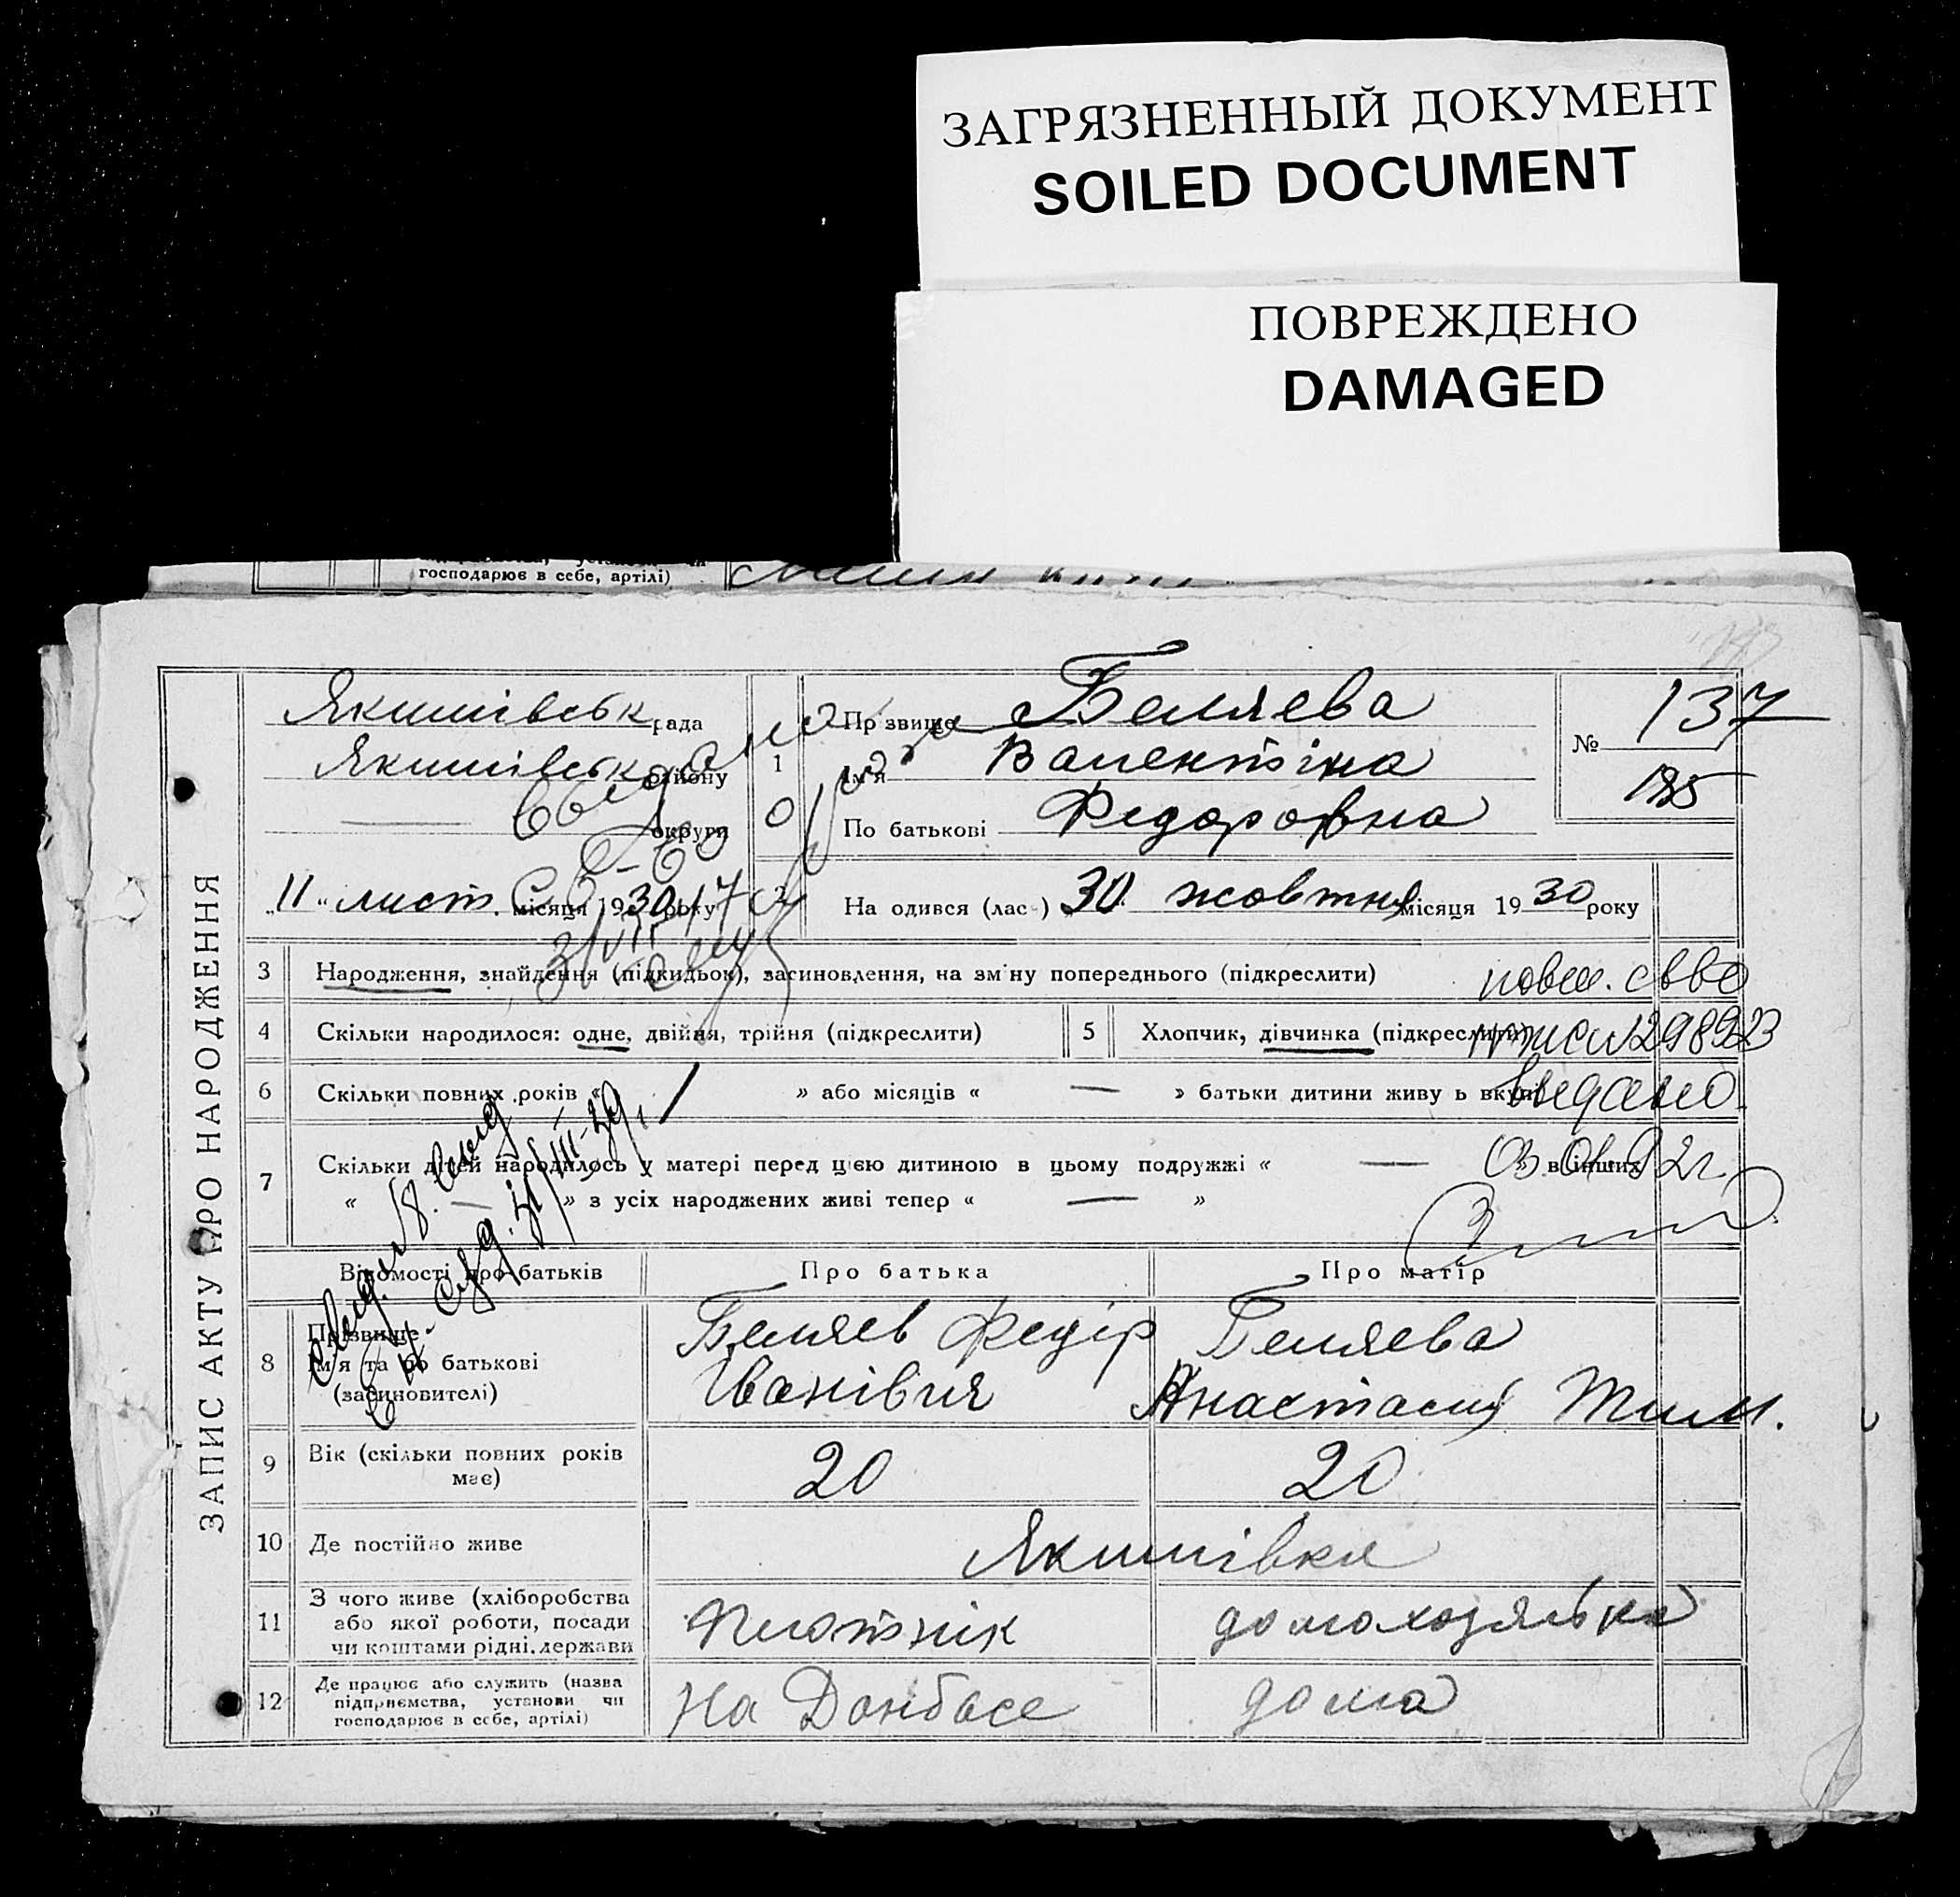 ЗАГРЯЗНЕННЫЙ ДОКУМЕНТ
SOILED DOCUMENT
ПОВРЕЖДЕНО
DAMAGED
господарює в себе, артілі)
ЗАПИС АКТУ ПРО НАРОДЖЕННЯ
Якимівськ рада
Якимівськ району
округи
"11" лист. місяця 1930 року
1
Прізвище Беляева
Ім'я Валентіна
По батькові Федоровна
№ 137
195
2
На одився (лас ) 30 жовтня місяця 1930 року
3 Народження, знайдення (підкидьок), засиновлення, на зміну попереднього (підкреслити)
повт. св-во
4 Скільки народилося: одне, двійня, трійня (підкреслити)
5 Хлопчик, дівчинка (підкреслити)
298923
6 Скільки повних років « 1 » або місяців « — » батьки дитини живуть вкупі
выдано
7 Скільки дітей народилось у матері перед цією дитиною в цьому подружжі « — » в інших
03.01.92г.
« — » з усіх народжених живі тепер « — »
Відомості про батьків
Про батька
Про матір
8 Прізвище
Ім'я та по батькові
(засиновителі)
Беляев Федір
Іванівич
Беляева
Анастасия Тим.
9 Вік (скільки повних років має)
20
20
10 Де постійно живе
Якимівка
11 З чого живе (хліборобства
або якої роботи, посади
чи коштами рідні, держави
Плотнік
домохозяйка
12 Де працює або служить (назва
підприємства, установи чи
господарює в себе, артілі)
На Донбасе
дома